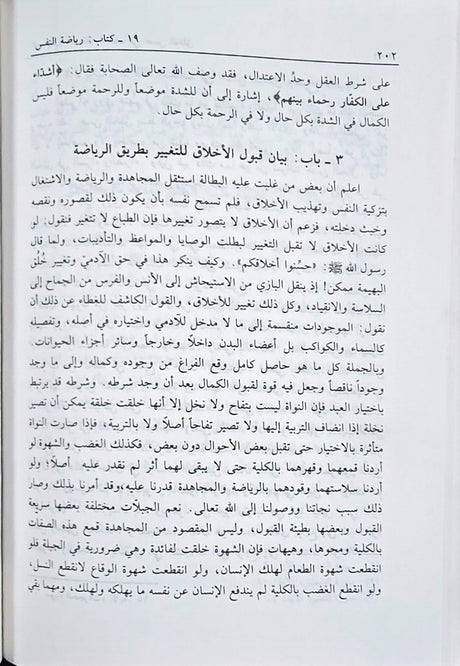 ٢٠٢ ١٩ ـ كتاب: رياضة النفس
على شرط العقل وحدّ الاعتدال، فقد وصف الله تعالى الصحابة فقال: ﴿أشدّاء
على الكفّار رحماء بينهم﴾، إشارة إلى أن للشدة موضعاً وللرحمة موضعاً فليس
الكمال في الشدة بكل حال ولا في الرحمة بكل حال.
٣ ـ باب: بيان قبول الأخلاق للتغيير بطريق الرياضة
اعلم أن بعض من غلبت عليه البطالة استثقل المجاهدة والرياضة والاشتغال
بتزكية النفس وتهذيب الأخلاق، فلم تسمح نفسه بأن يكون ذلك لقصوره ونقصه
وخبث دخلته، فزعم أن الأخلاق لا يتصور تغييرها فإن الطباع لا تتغير فنقول: لو
كانت الأخلاق لا تقبل التغيير لبطلت الوصايا والمواعظ والتأديبات، ولما قال
رسول الله ﷺ: «حسّنوا أخلاقكم». وكيف ينكر هذا في حق الآدميّ وتغيير خُلُق
البهيمة ممكن! إذ ينقل البازي من الاستيحاش إلى الأنس والفرس من الجماح إلى
السلاسة والانقياد، وكل ذلك تغيير للأخلاق، والقول الكاشف للغطاء عن ذلك أن
نقول: الموجودات منقسمة إلى ما لا مدخل للآدمي واختياره في أصله، وتفصيله
كالسماء والكواكب بل أعضاء البدن داخلاً وخارجاً وسائر أجزاء الحيوانات.
وبالجملة كل ما هو حاصل كامل وقع الفراغ من وجوده وكماله وإلى ما وجد
وجوداً ناقصاً وجعل فيه قوة لقبول الكمال بعد أن وجد شرطه. وشرطه قد يرتبط
باختيار العبد فإن النواة ليست بتفاح ولا نخل إلا أنها خلقت خلقة يمكن أن تصير
نخلاً إذا انضاف التربية إليها ولا تصير تفاحاً أصلاً ولا بالتربية، فإذا صارت النواة
متأثرة بالاختيار حتى تقبل بعض الأحوال دون بعض، فكذلك الغضب والشهوة لو
أردنا قمعهما وقهرهما بالكلية حتى لا يبقى لهما أثر لم نقدر عليه أصلاً؛ ولو
أردنا سلاستهما وقودهما بالرياضة والمجاهدة قدرنا عليه،وقد أمرنا بذلك وصار
ذلك سبب نجاتنا ووصولنا إلى الله تعالى. نعم الجبلّات مختلفة بعضها سريعة
القبول وبعضها بطيئة القبول، وليس المقصود من المجاهدة قمع هذه الصفات
بالكلية ومحوها، وهيهات فإن الشهوة خلقت لفائدة وهي ضرورية في الجبلة فلو
انقطعت شهوة الطعام لهلك الإنسان، ولو انقطعت شهوة الوقاع لانقطع النسل،
ولو انقطع الغضب بالكلية لم يندفع الإنسان عن نفسه ما يهلكه ولهلك، ومهما بقي